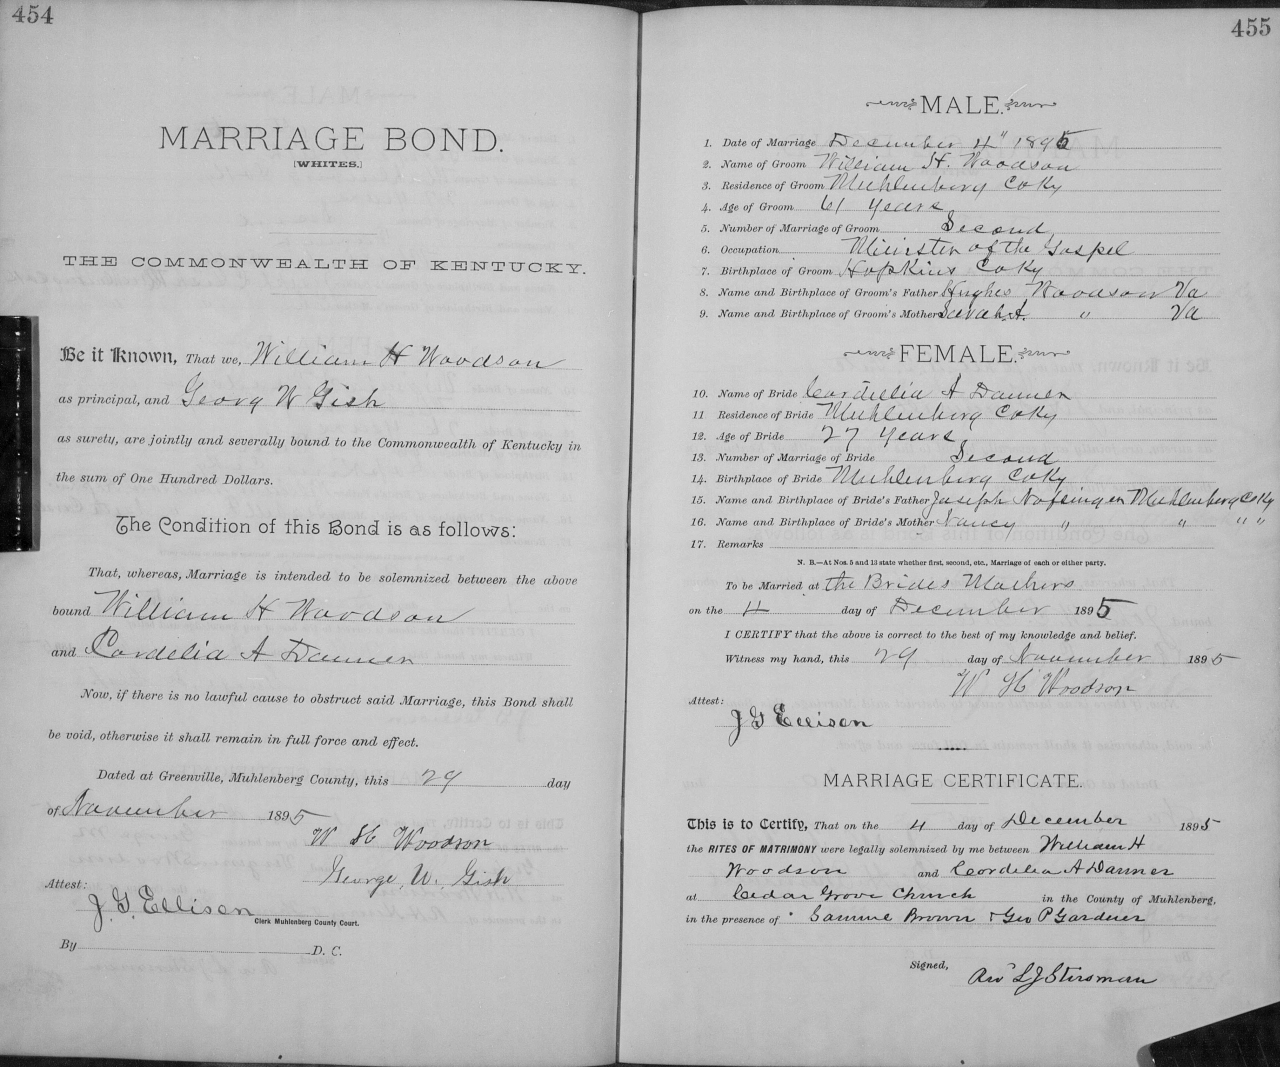 454
MARRIAGE BOND.
[WHITES.]
THE COMMONWEALTH OF KENTUCKY.
Be it Known, That we, William H Woodson
as principal, and Georg W Gish
as surety, are jointly and severally bound to the Commonwealth of Kentucky in
the sum of One Hundred Dollars.
The Condition of this Bond is as follows:
That, whereas, Marriage is intended to be solemnized between the above
bound William H Woodson
and Cordelia A Danner
Now, if there is no lawful cause to obstruct said Marriage, this Bond shall
be void, otherwise it shall remain in full force and effect.
Dated at Greenville, Muhlenberg County, this 29 day
of November 1895
W H Woodson
George. W. Gish
Attest:
J. G. Ellison
Clerk Muhlenberg County Court.
By D. C.
455
MALE.
1. Date of Marriage December 4" 1895
2. Name of Groom William H. Woodson
3. Residence of Groom Muhlenberg Co Ky
4. Age of Groom 61 Years
5. Number of Marriage of Groom Second
6. Occupation Minister of the Gospel
7. Birthplace of Groom Hopkins Co Ky
8. Name and Birthplace of Groom's Father Hughes Woodson Va
9. Name and Birthplace of Groom's Mother Sarah A. " Va
FEMALE.
10. Name of Bride Cordelia A Danner
11 Residence of Bride Muhlenberg Co Ky
12. Age of Bride 27 Years
13. Number of Marriage of Bride Second
14. Birthplace of Bride Muhlenberg Co Ky
15. Name and Birthplace of Bride's Father Joseph Nofsinger Muhlenberg Co Ky
16. Name and Birthplace of Bride's Mother Nancy " " " "
17. Remarks
N. B.—At Nos. 5 and 13 state whether first, second, etc., Marriage of each or either party.
To be Married at the Brides Mothers
on the 4 day of December 1895
I CERTIFY that the above is correct to the best of my knowledge and belief.
Witness my hand, this 29 day of November 1895
W H Woodson
Attest:
J G Ellison
MARRIAGE CERTIFICATE.
This is to Certify, That on the 4 day of December 1895
the RITES OF MATRIMONY were legally solemnized by me between William H
Woodson and Cordelia A Danner
at Cedar Grove Church in the County of Muhlenberg,
in the presence of Brown & Geo P Gardner
Signed,
L J